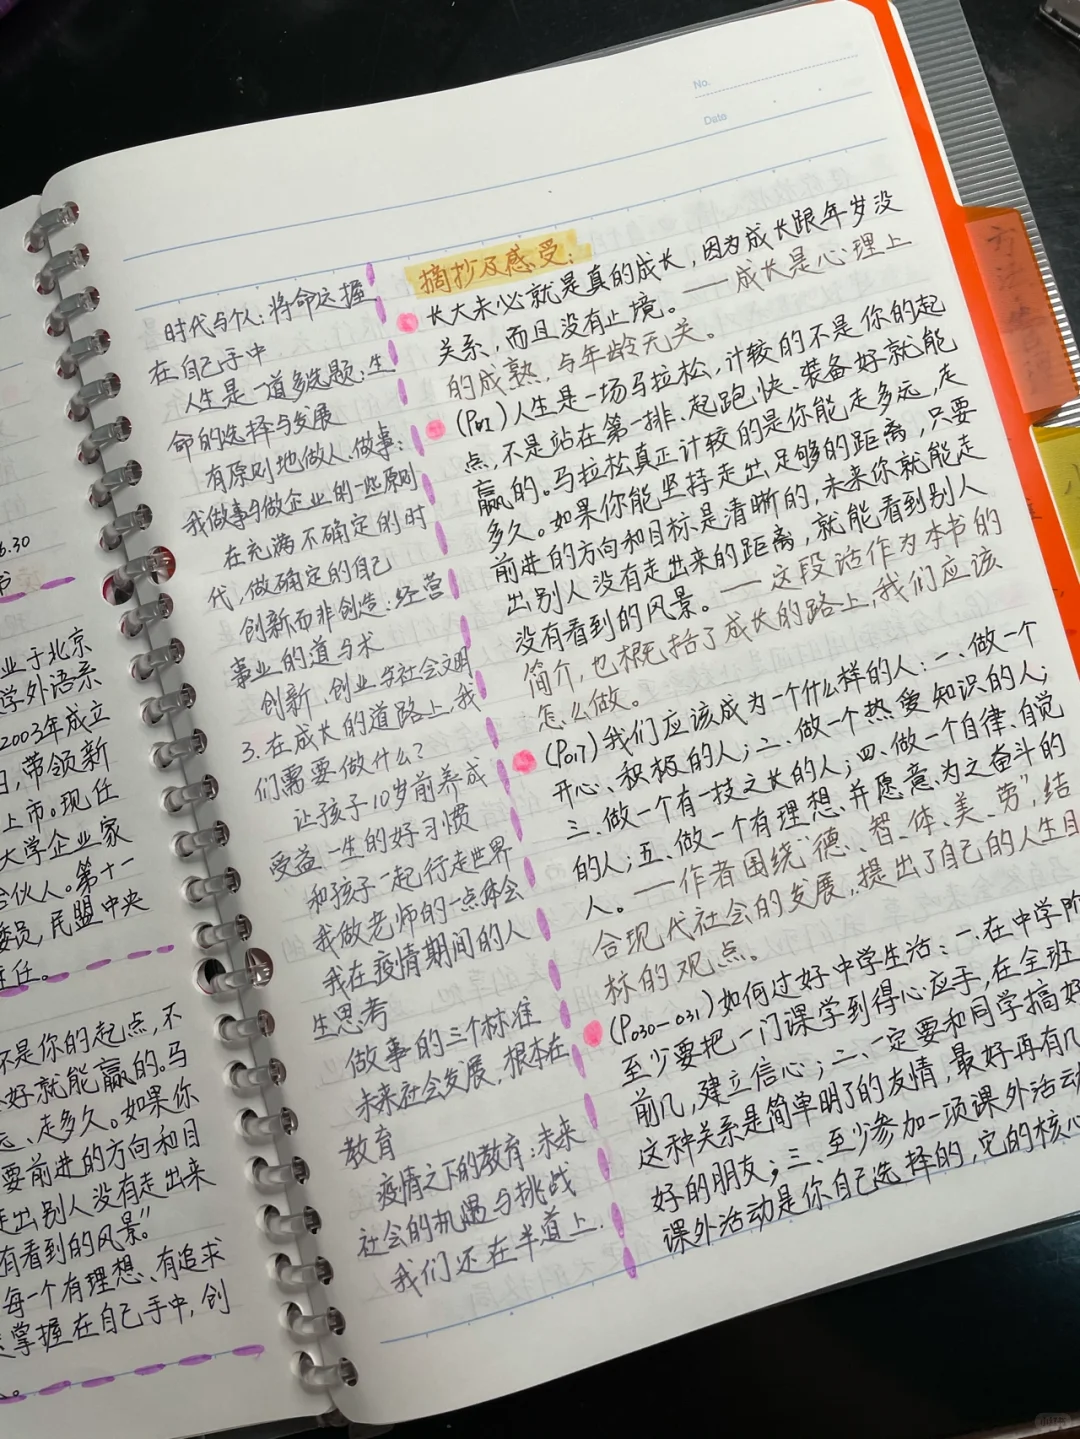 6.30
书
业于北京
学外语系
2003年成立
日,带领新
上市。现任
大学企业家
合伙人。第十一
委员,民盟中央
主任。
不是你的起点,不
好就能赢的。马
远、走多久。如果你
要前进的方向和目
走出别人没有走出来
有看到的风景。”
每一个有理想、有追求
掌握在自己手中,创
时代与个人:将命运握
在自己手中
人生是一道多选题:生
命的选择与发展
有原则地做人、做事:
我做事与做企业的一些原则
在充满不确定的时
代,做确定的自己
创新而非创造:经营
事业的道与术
创新、创业与社会文明
3.在成长的道路上,我
们需要做什么?
让孩子10岁前养成
受益一生的好习惯
和孩子一起行走世界
我做老师的一点体会
我在疫情期间的人
生思考
做事的三个标准
未来社会发展,根本在
教育
疫情之下的教育:未来
社会的机遇与挑战
我们还在半道上.
No.
Date
摘抄及感受:
长大未必就是真的成长,因为成长跟年岁没
关系,而且没有止境。——成长是心理上
的成熟,与年龄无关。
人生是一场马拉松,计较的不是你的起
点,不是站在第一排、起跑快、装备好就能
赢的。马拉松真正计较的是你能走多远,走
多久。如果你能坚持走出足够的距离,只要
前进的方向和目标是清晰的,未来你就能走
出别人没有走出来的距离,就能看到别人
没有看到的风景。——这段话作为本书的
简介,也概括了成长的路上,我们应该
怎么做。
(P017)我们应该成为一个什么样的人:一、做一个
开心、积极的人;二、做一个热爱知识的人;
三、做一个有一技之长的人;四、做一个自律、自觉
的人;五、做一个有理想、并愿意为之奋斗的
人。——作者围绕“德、智、体、美、劳”,结
合现代社会的发展,提出了自己的人生目
标的观点。
(P030-031)如何过好中学生活:一、在中学阶
至少要把一门课学到得心应手,在全班
前几,建立信心;二、一定要和同学搞好
这种关系是简单明了的友情,最好再有几
好的朋友;三、至少参加一项课外活动
课外活动是你自己选择的,它的核心
方法